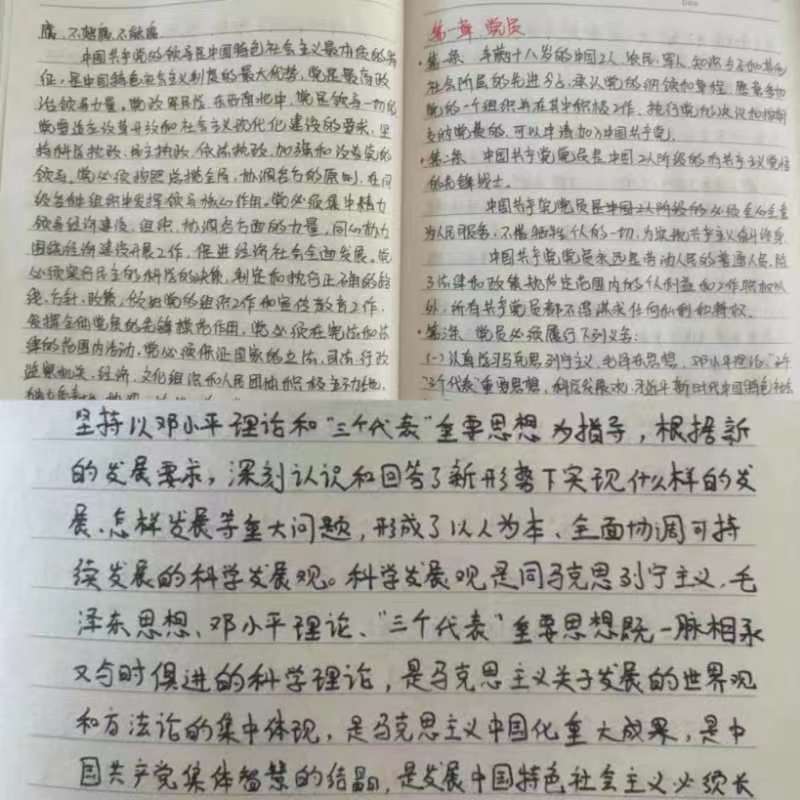 腐、不想腐、不能腐
中国共产党的领导是中国特色社会主义最本质的特
征,是中国特色社会主义制度的最大优势,党是最高政
治领导力量。党政军民学,东西南北中,党是领导一切的
党要适应改革开放和社会主义现代化建设的要求,坚
持科学执政、民主执政、依法执政,加强和改善党的
领导。党必须按照总揽全局、协调各方的原则,在同
级各种组织中发挥领导核心作用。党必须集中精力
领导经济建设,组织、协调各方面的力量,同心协力
围绕经济建设开展工作,促进经济社会全面发展。党
必须实行民主的科学的决策,制定和执行正确的路
线、方针、政策,做好党的组织工作和宣传教育工作,
发挥全体党员的先锋模范作用,党必须在宪法和法
律的范围内活动,党必须保证国家的立法、司法、行政
监察机关,经济、文化组织和人民团体积极主动地、
第一章 党员
·第一条 年满十八岁的中国工人、农民、军人、知识分子和其他
社会阶层的先进分子,承认党的纲领和章程,愿意参加
党的一个组织并在其中积极工作、执行党的决议和按期
交纳党费的,可以申请加入中国共产党。
·第二条 中国共产党党员是中国工人阶级的有共产主义觉悟
的先锋战士。
中国共产党党员是中国工人阶级的必须全心全意
为人民服务,不惜牺牲个人的一切,为实现共产主义奋斗终身
中国共产党党员永远是劳动人民的普通人员,除
了法律和政策规定范围内的个人利益和工作职权以
外,所有共产党员都不得谋求任何私利和特权。
·第三条 党员必须履行下列义务:
(一)认真学习马克思列宁主义、毛泽东思想、邓小平理论、
"三个代表"重要思想、科学发展观、习近平新时代中国特色社会
坚持以邓小平理论和"三个代表"重要思想为指导,根据新
的发展要求,深刻认识和回答了新形势下实现什么样的发
展、怎样发展等重大问题,形成了以人为本、全面协调可持
续发展的科学发展观。科学发展观是同马克思列宁主义、毛
泽东思想、邓小平理论、"三个代表"重要思想既一脉相承
又与时俱进的科学理论,是马克思主义关于发展的世界观
和方法论的集中体现,是马克思主义中国化重大成果,是中
国共产党集体智慧的结晶,是发展中国特色社会主义必须长